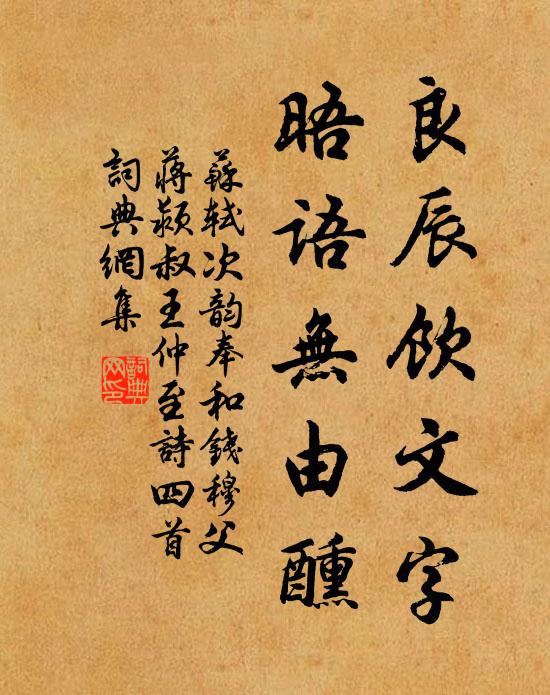 良辰飲文字
晤語無由醺
蘇軾次韵奉和錢穆父
蔣潁叔王仲至詩四首
詞典網集
詞典
网印